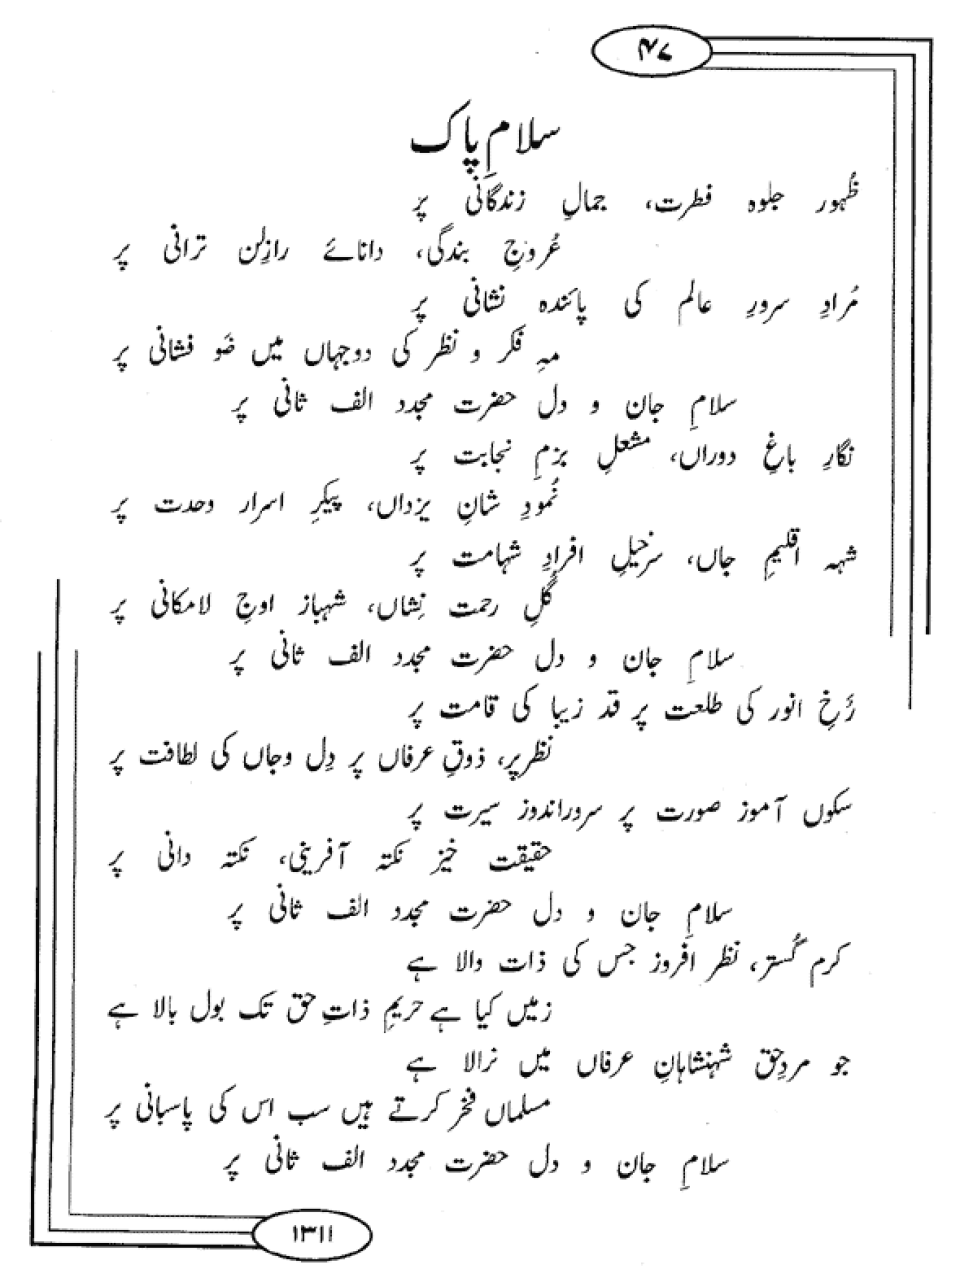 ۴۷
سلامِ پاک
ظُہور جلوہ فطرت، جمالِ زندگانی پر
عُروجِ بندگی، دانائے رازِلن ترانی پر
مُرادِ سرورِ عالم کی پائندہ نشانی پر
مہِ فکر و نظر کی دوجہاں میں ضَو فشانی پر
سلامِ جان و دل حضرت مجدد الف ثانی پر
نگارِ باغِ دوراں، مشعلِ بزمِ نجابت پر
نُمودِ شانِ یزداں، پیکرِ اسرار وحدت پر
شہہ اقلیمِ جاں، سرخیلِ افرادِ شہامت پر
گُلِ رحمت نِشاں، شہباز اوجِ لامکانی پر
سلامِ جان و دل حضرت مجدد الف ثانی پر
رُخِ انور کی طلعت پر قد زیبا کی قامت پر
نظرپر، ذوقِ عرفاں پر دِل وجاں کی لطافت پر
سکوں آموز صورت پر سروراندوز سیرت پر
حقیقت خیز نکتہ آفرینی، نکتہ دانی پر
سلامِ جان و دل حضرت مجدد الف ثانی پر
کرم گُستر، نظر افروز جس کی ذات والا ہے
زمیں کیا ہے حریمِ ذاتِ حق تک بول بالا ہے
جو مردِحق شہنشاہانِ عرفاں میں نرالا ہے
مسلماں فخر کرتے ہیں سب اس کی پاسبانی پر
سلامِ جان و دل حضرت مجدد الف ثانی پر
۱۳۱۱